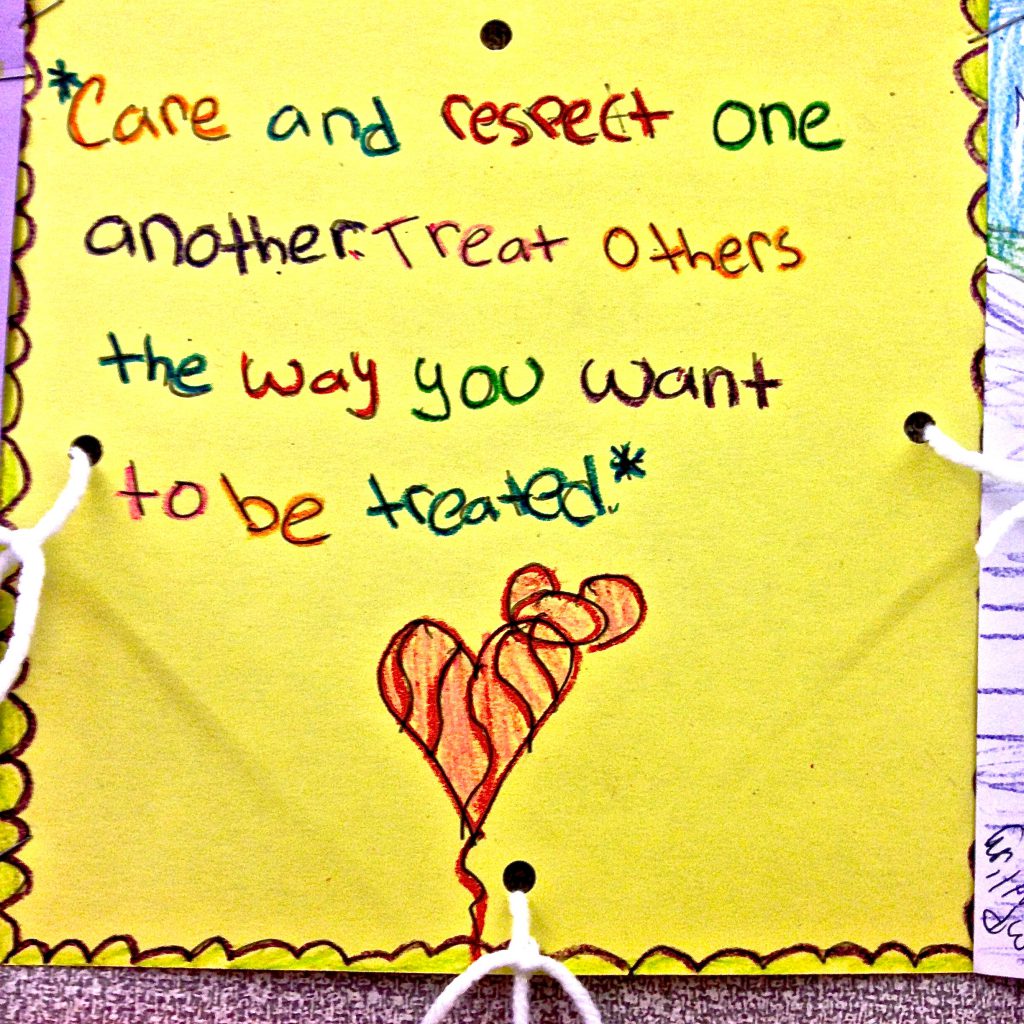 *Care and respect one
another. Treat others
the way you want
to be treated.*